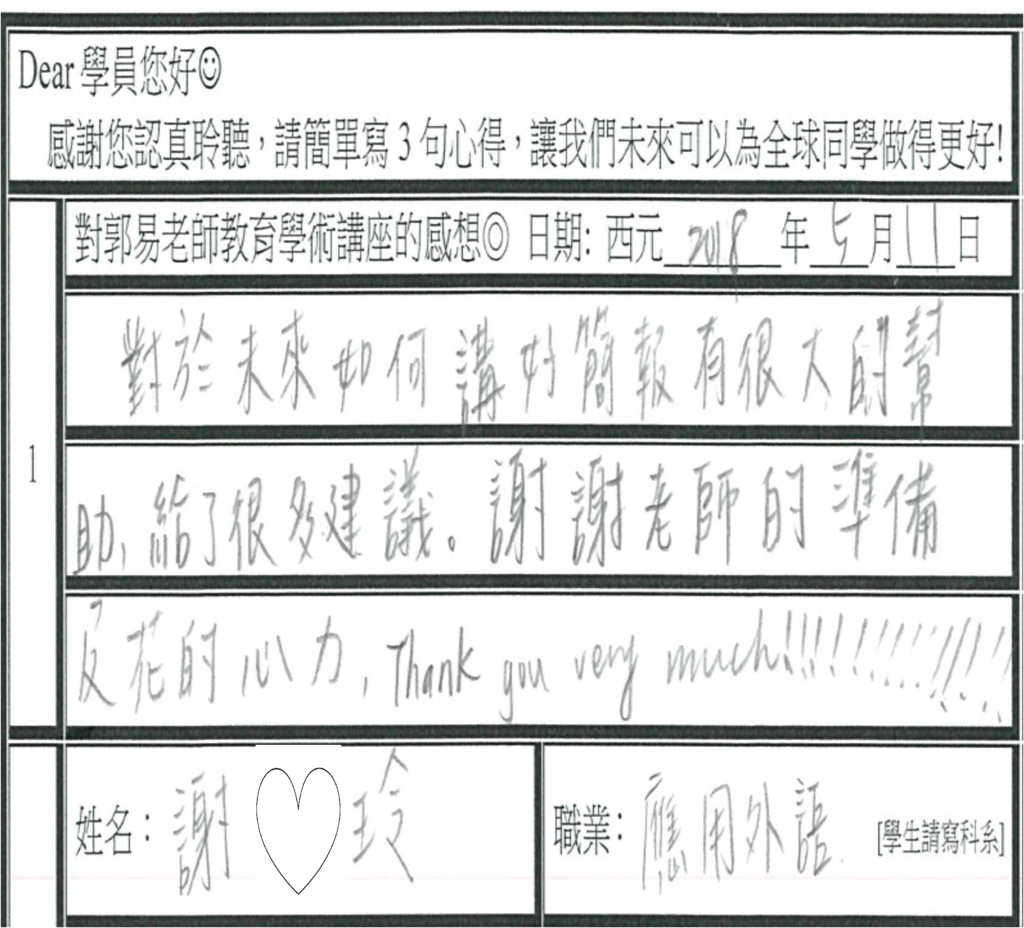 Dear 學員您好☺
感謝您認真聆聽，請簡單寫 3 句心得，讓我們未來可以為全球同學做得更好!
對郭易老師教育學術講座的感想◎ 日期: 西元 2018 年 5 月 11 日
對於未來如何講好簡報有很大的幫
1
助, 給了很多建議。謝謝老師的準備
及花的心力, Thank you very much!!!!!!!!!!!!!!!
姓名： 謝 ♡ 玲
職業： 應用外語 [學生請寫科系]